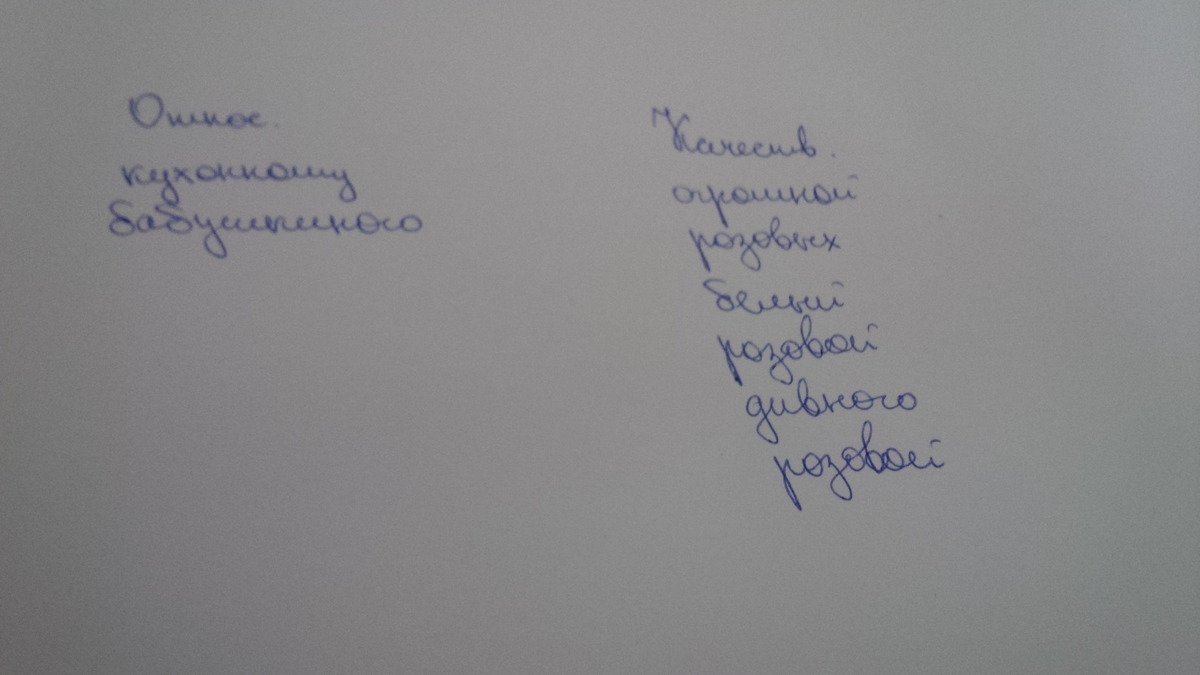 Относ.
кухонному
бабушкиного
Качеств.
огромной
розовых
белый
розовой
дивного
розовой